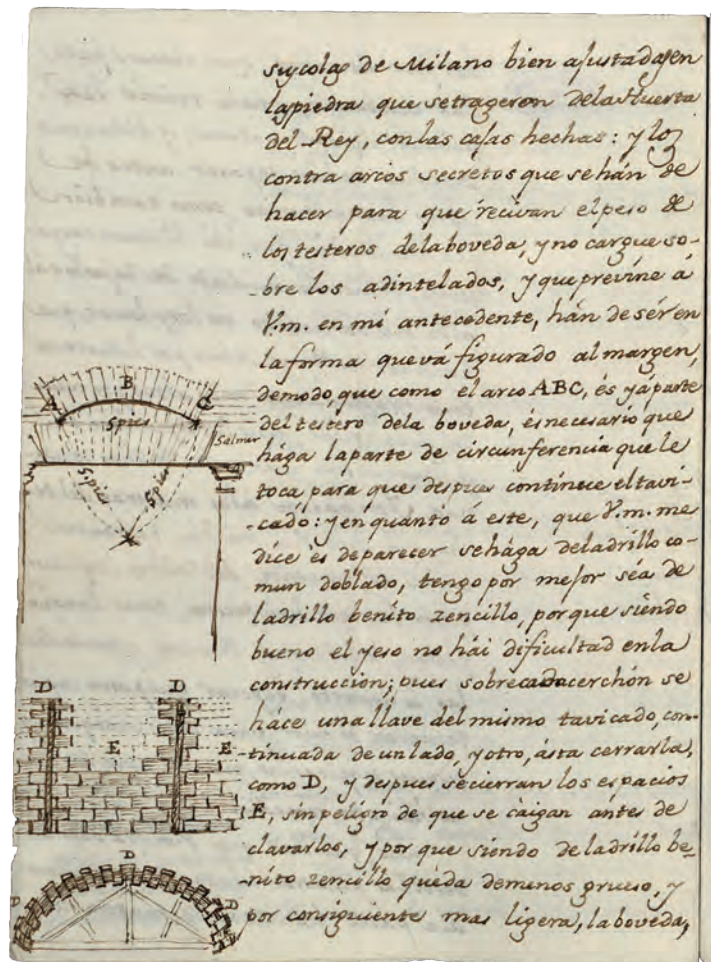 sus colas de Milano bien ajustadas en
la piedra que se trageron de la Huerta
del Rey, con las casas hechas: y los
contra arcos secretos que se hán de
hacer para que recivan el peso de
los testeros de la boveda, y no cargue so-
bre los adintelados, y que previne á
V.m. en mi antecedente, hán de sér en
la forma que vá figurado al margen,
de modo, que como el arco ABC, és yá parte
del testero de la boveda, és necesario que
hága la parte de circunferencia que le
toca para que despues continúe el tavi-
-cado: y en quanto á este, que V.m. me
dice és de parecer se hága de ladrillo co-
mun doblado, tengo por mejor séa de
ladrillo benito zencillo, porque siendo
bueno el yeso no hái dificultad en la
construccion; pues sobre cada cerchón se
háce una llave del mismo tavicado, con-
-tinuada de un lado, y otro, ásta cerrarla,
como D, y despues se cierran los espacios
E, sin peligro de que se cáigan antes de
clavarlos, y por que siendo de ladrillo be-
-nito zencillo quéda de menos grueso, y
por consiguiente mas ligera, la boveda,
A B C
5 pies
Salmer
5 pies 5 pies
D D
E E
D
D D